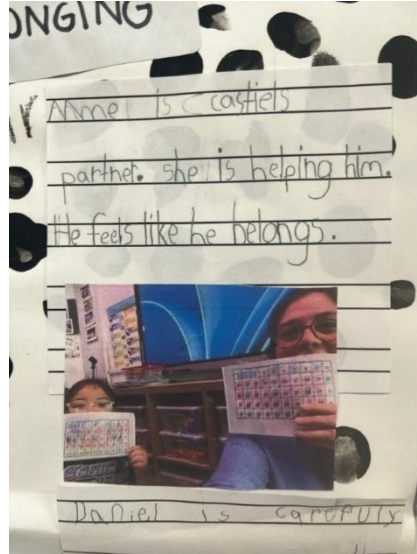 ONGING
Mme is castiels
partner. she is helping him.
He feels like he belongs.
Daniel is carefuly